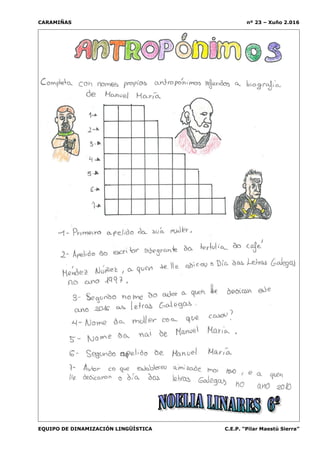 CARAMIÑAS nº 23 – Xuño 2.016
ANTROPÓNIMOS
Completa con nomes propios antropónimos referidos a biografía
de Manuel María
1-
2-
3-
4-
5-
6-
7-
1- Primeiro apelido da súa muller.
2- Apelido do escritor integrante da tertulia do café
Méndez Núñez, a quen se lle adicou o Día das Letras Galegas
no ano 1997.
3- Segundo nome do autor a quen lle dedican este
ano 2016 as letras Galegas.
4- Nome da muller coa que casou?
5- Nome da nai de Manuel María.
6- Segundo apelido de Manuel María
7- Autor co que estableceu amizade moi , e a quen
lle dedicaron o día das letras Galegas no ano 2010
NOELIA LINARES 6º
EQUIPO DE DINAMIZACIÓN LINGÜÍSTICA C.E.P. "Pilar Maestú Sierra"